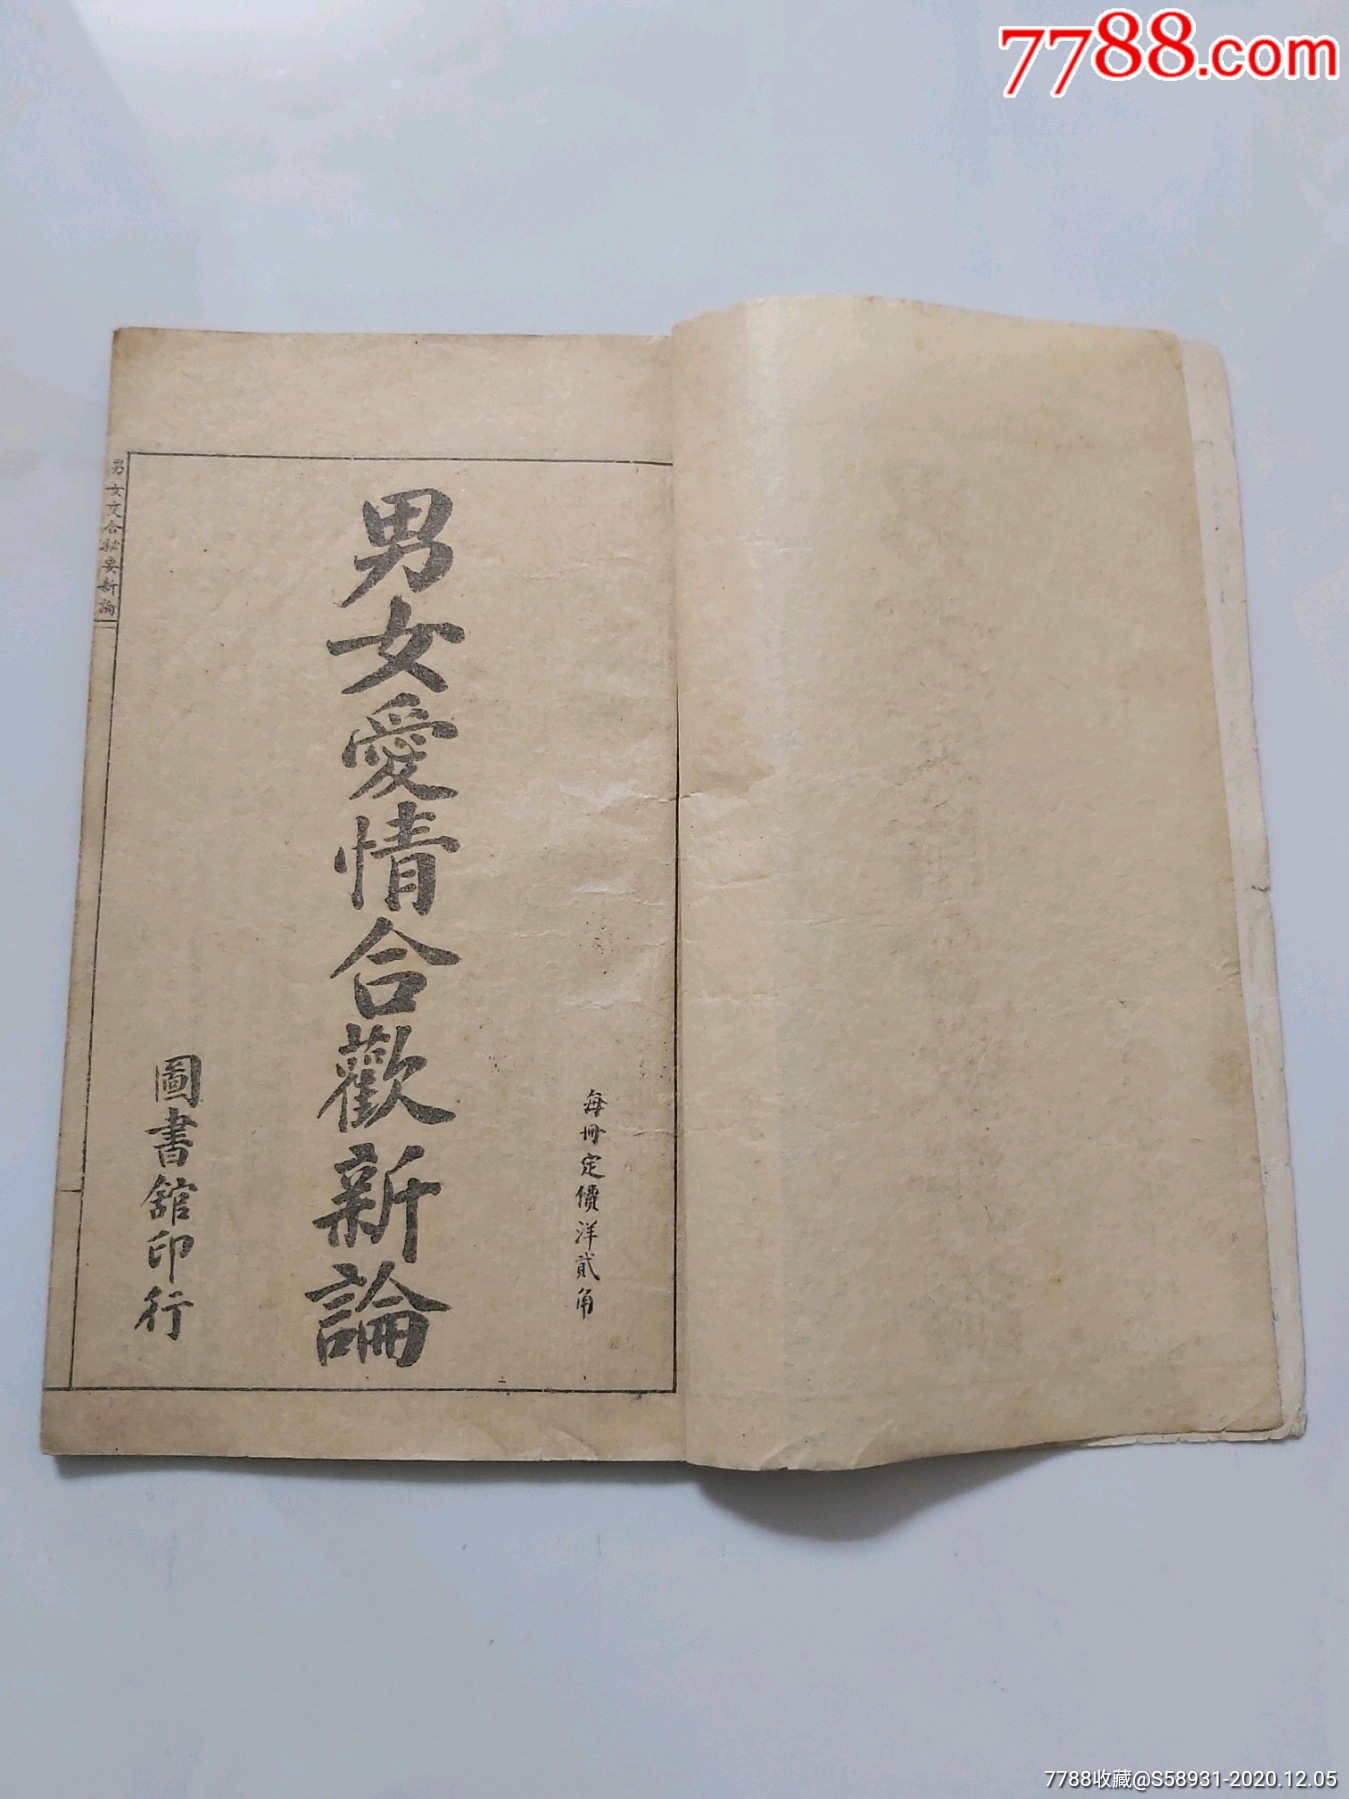 7788.com
每冊定價洋貳角
男女愛情合歡新論
圖書舘印行
男女交合秘要新論
7788收藏@S58931-2020.12.05